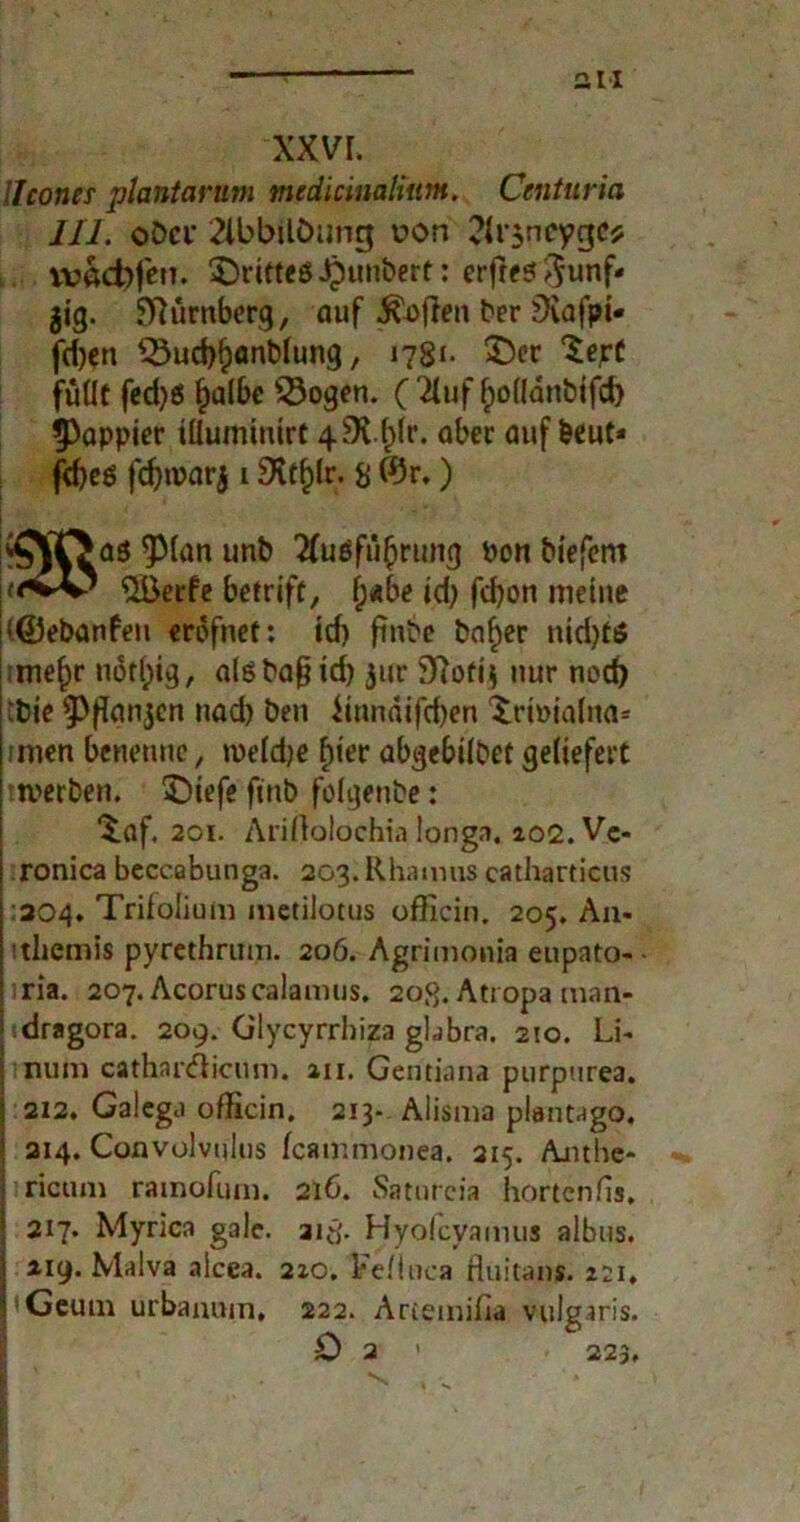 211
XXVI.
Icones plantarum medicinalium. Centuria
III. oder Abbildung von Arzneygе⸗
wächsen. Drittes Hundert: erstes Funf⸗
zig. Nürnberg, auf Kosten der Raspi⸗
schen Buchhandlung, 1781. Der Text
füllt sechs halbe Bogen. (Auf holländisch
Pappier illuminirt 4 R.hlr. aber auf deut⸗
sches schwarz 1 Rthlr. 8 Gr.)
Das Plan und Ausführung von diesem
Werke betrift, habe ich schon meine
Gedanken eröfnet: ich finde daher nichts
mehr nöthig, als daß ich zur Notiz nur noch
die Pflanzen nach den linnäischen Trivialna⸗
men benenne, welche hier abgebildet geliefert
werden. Diese sind folgende:
Taf. 201. Aristolochia longa. 202. Ve-
ronica beccabunga. 203. Rhamnus catharticus
204. Trifolium metilotus officin. 205. An-
themis pyrethrum. 206. Agrimonia eupato-
ria. 207. Acorus calamus. 208. Atropa man-
dragora. 209. Glycyrrhiza glabra. 210. Li-
num catharcticum. 211. Gentiana purpurea.
212. Galega officin. 213. Alisma plantago.
214. Convolvulus scammonea. 215. Anthe-
ricum ramosum. 216. Satureia hortensis.
217. Myrica gale. 218. Hyoscyamus albus.
219. Malva alcea. 220. Festuca fluitans. 221.
Geum urbanum. 222. Artemisia vulgaris.
O 2 223.